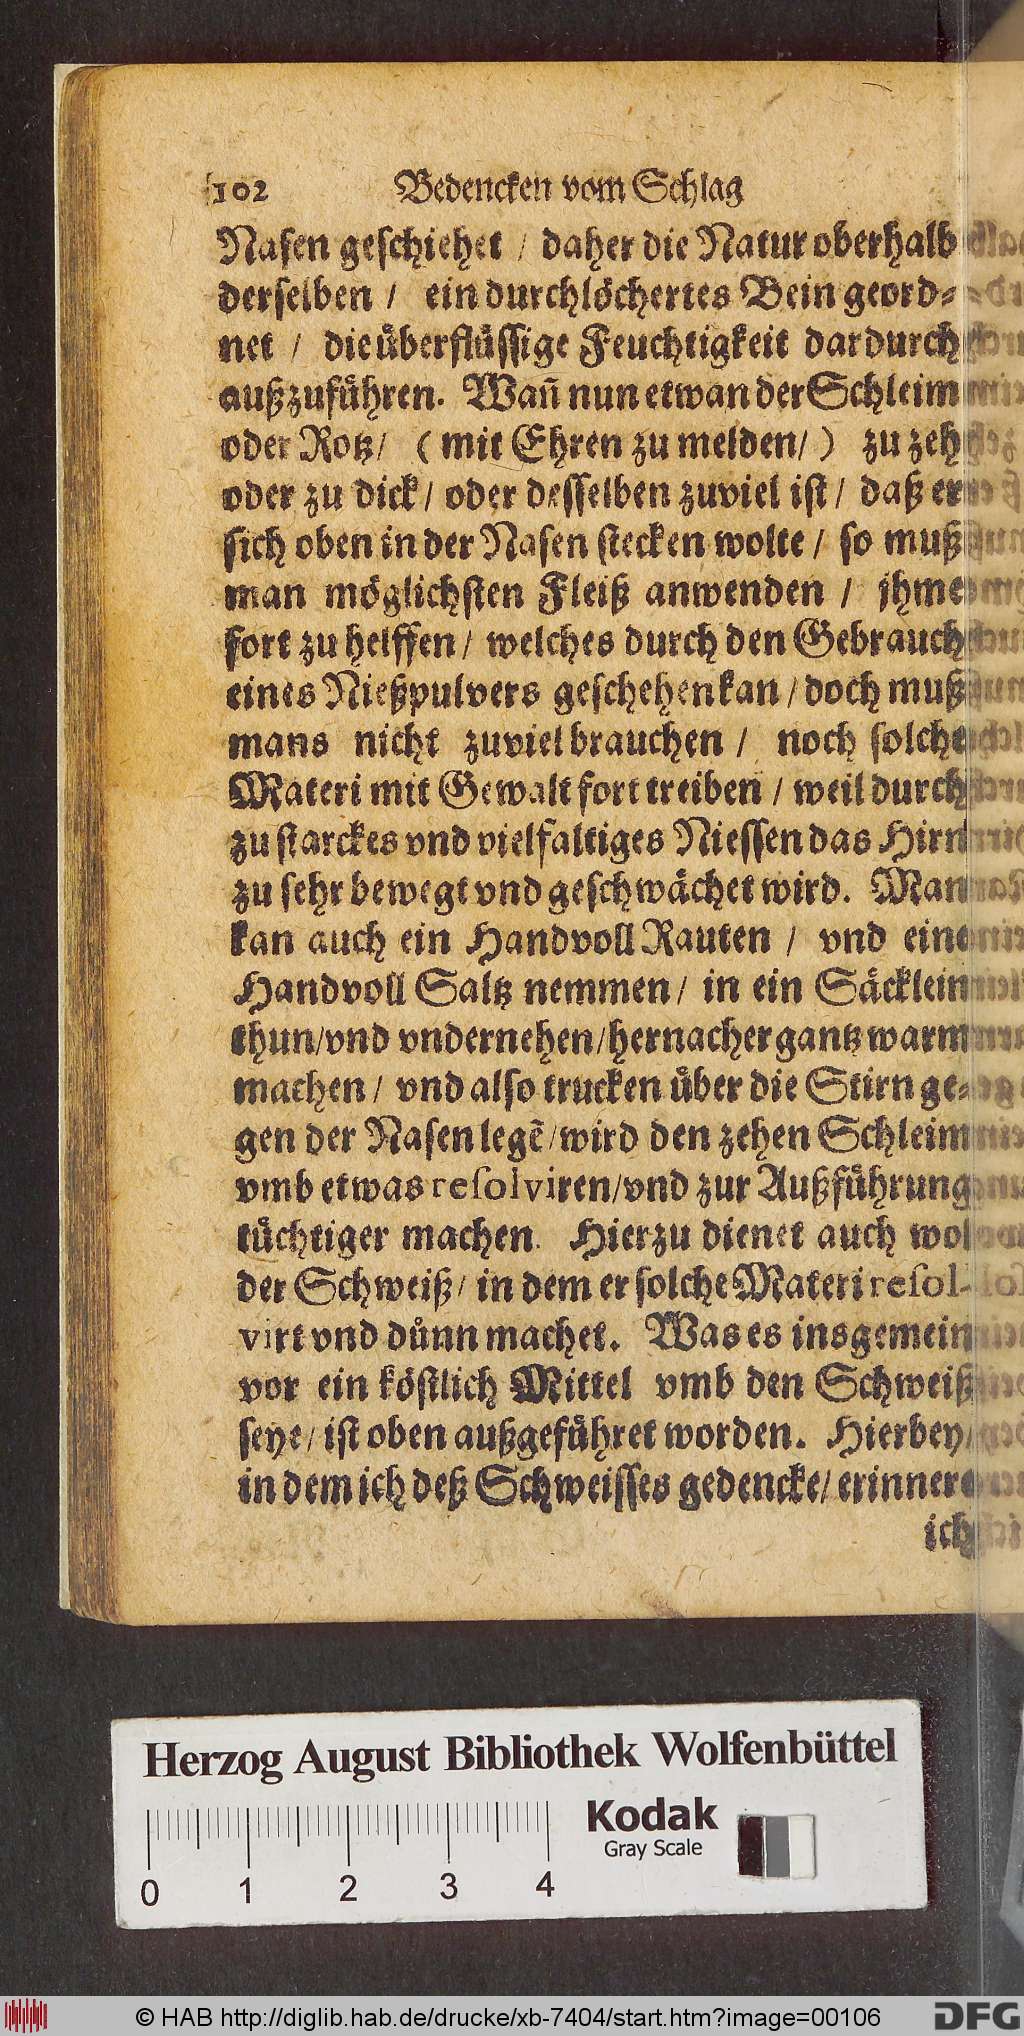 102 Bedencken vom Schlag
Nasen geschiehet / daher die Natur oberhalb
derselben / ein durchlöchertes Bein geord⸗
net / die überflüssige Feuchtigkeit dardurch
außzuführen. Wañ nun etwan der Schleim
oder Rotz/ ( mit Ehren zu melden/) zu zeh
oder zu dick/ oder desselben zuviel ist/ daß er
sich oben in der Nasen stecken wolte/ so muß
man möglichsten Fleiß anwenden / jhme
fort zu helffen/ welches durch den Gebrauch
eines Nießpulvers geschehen kan/ doch muß
mans nicht zuviel brauchen / noch solche
Materi mit Gewalt fort treiben / weil durch
zu starckes vnd vielfaltiges Niessen das Hirn
zu sehr bewegt vnd geschwächet wird. Man
kan auch ein Handvoll Rauten / vnd eine
Handvoll Saltz nemmen/ in ein Säcklein
thun/vnd vndernehen/hernacher gantz warm
machen/ vnd also trucken über die Stirn ge⸗
gen der Nasen legẽ/wird den zehen Schleim
vmb etwas resolviren/vnd zur Außführung
tüchtiger machen. Hierzu dienet auch wol
der Schweiß/ in dem er solche Materi resol-
virt vnd dünn machet. Was es insgemein
vor ein köstlich Mittel vmb den Schweiß
seye/ ist oben außgeführet worden. Hierbey/
in dem ich deß Schweisses gedencke/ erinnere
ich
Herzog August Bibliothek Wolfenbüttel
Kodak
Gray Scale
0 1 2 3 4
© HAB http://diglib.hab.de/drucke/xb-7404/start.htm?image=00106
DFG